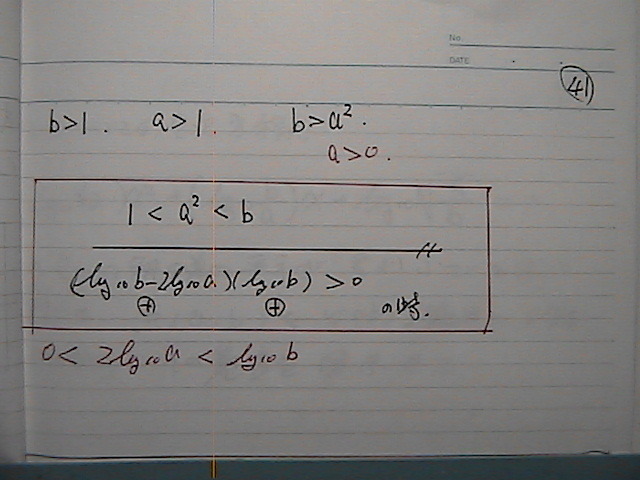 No.
DATE
41
b>1. a>1. b>a².
a>0.
1 < a² < b
(log₁₀b-2log₁₀a)(log₁₀b) >0
⊕ ⊕ の時.
0< 2log₁₀a < log₁₀b